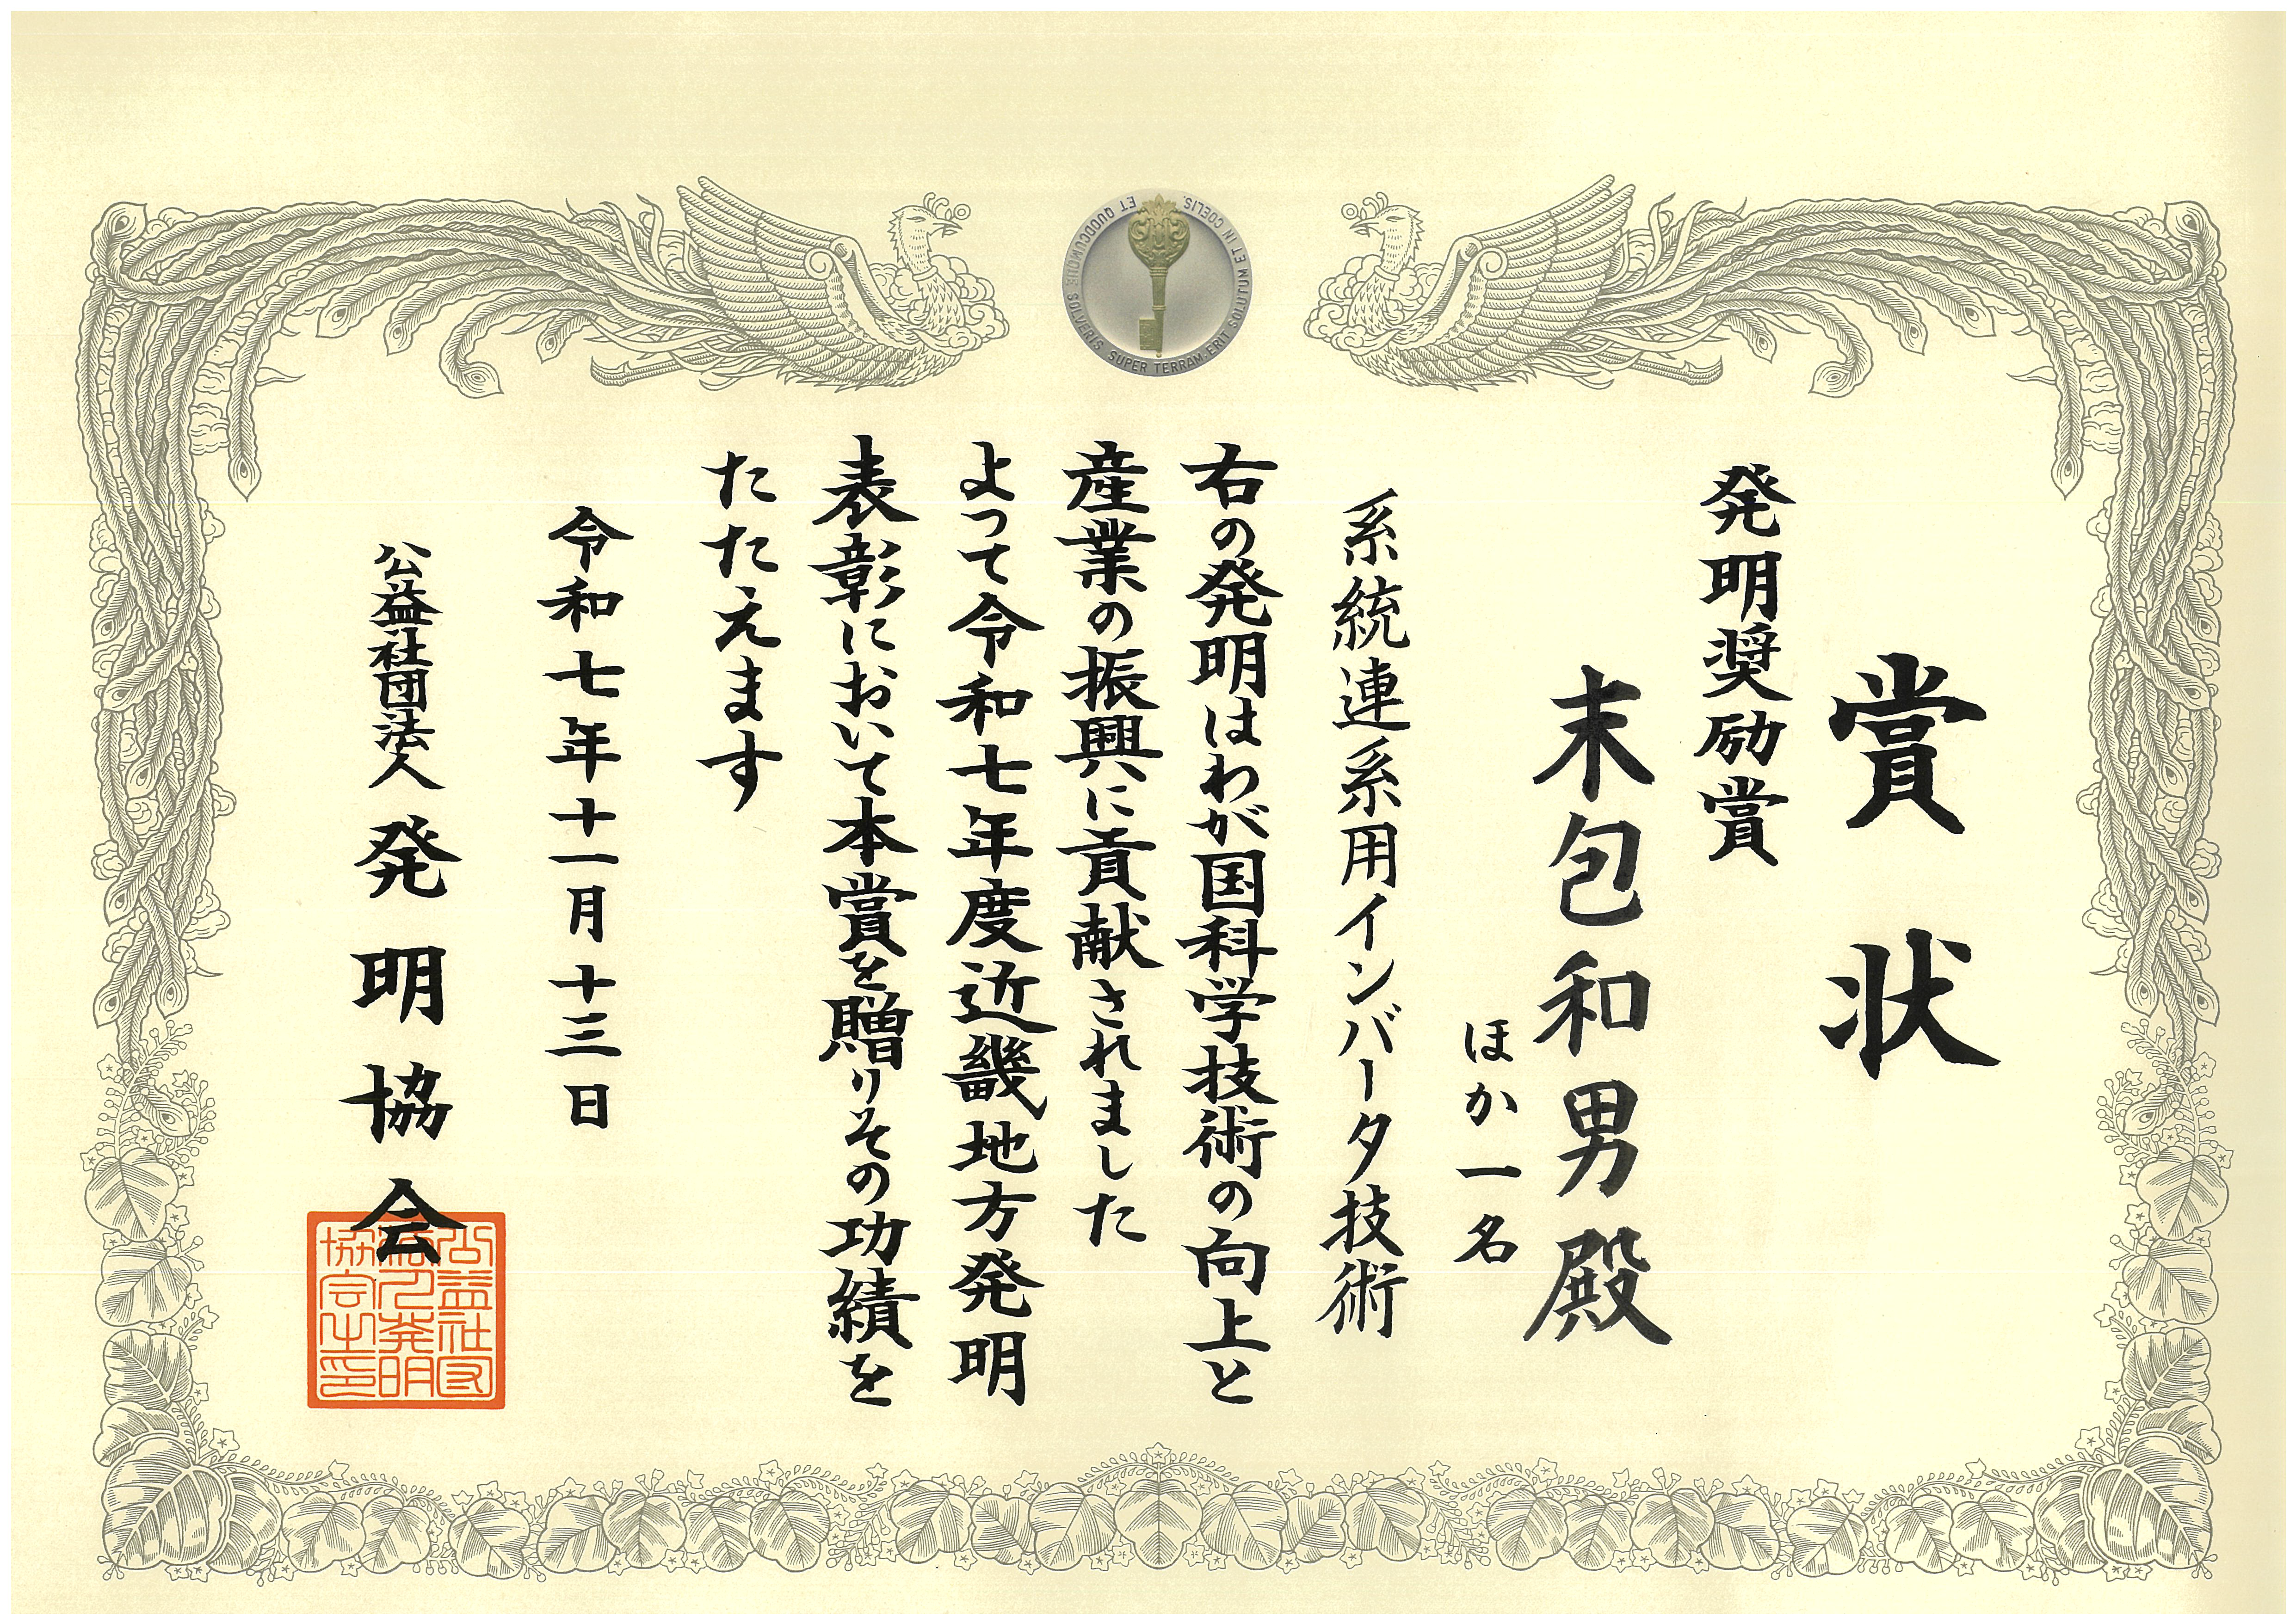 賞状
発明奨励賞
末包和男殿
ほか一名
系統連系用インバータ技術
右の発明はわが国科学技術の向上と
産業の振興に貢献されました
よって令和七年度近畿地方発明
表彰において本賞を贈りその功績を
たたえます
令和七年十一月十三日
公益社団法人 発明協会
ET QUODCUMQUE SOLVERIS SUPER TERRAM·ERIT SOLUTUM ET IN COELIS.
公益社団
法人発明
協会之印